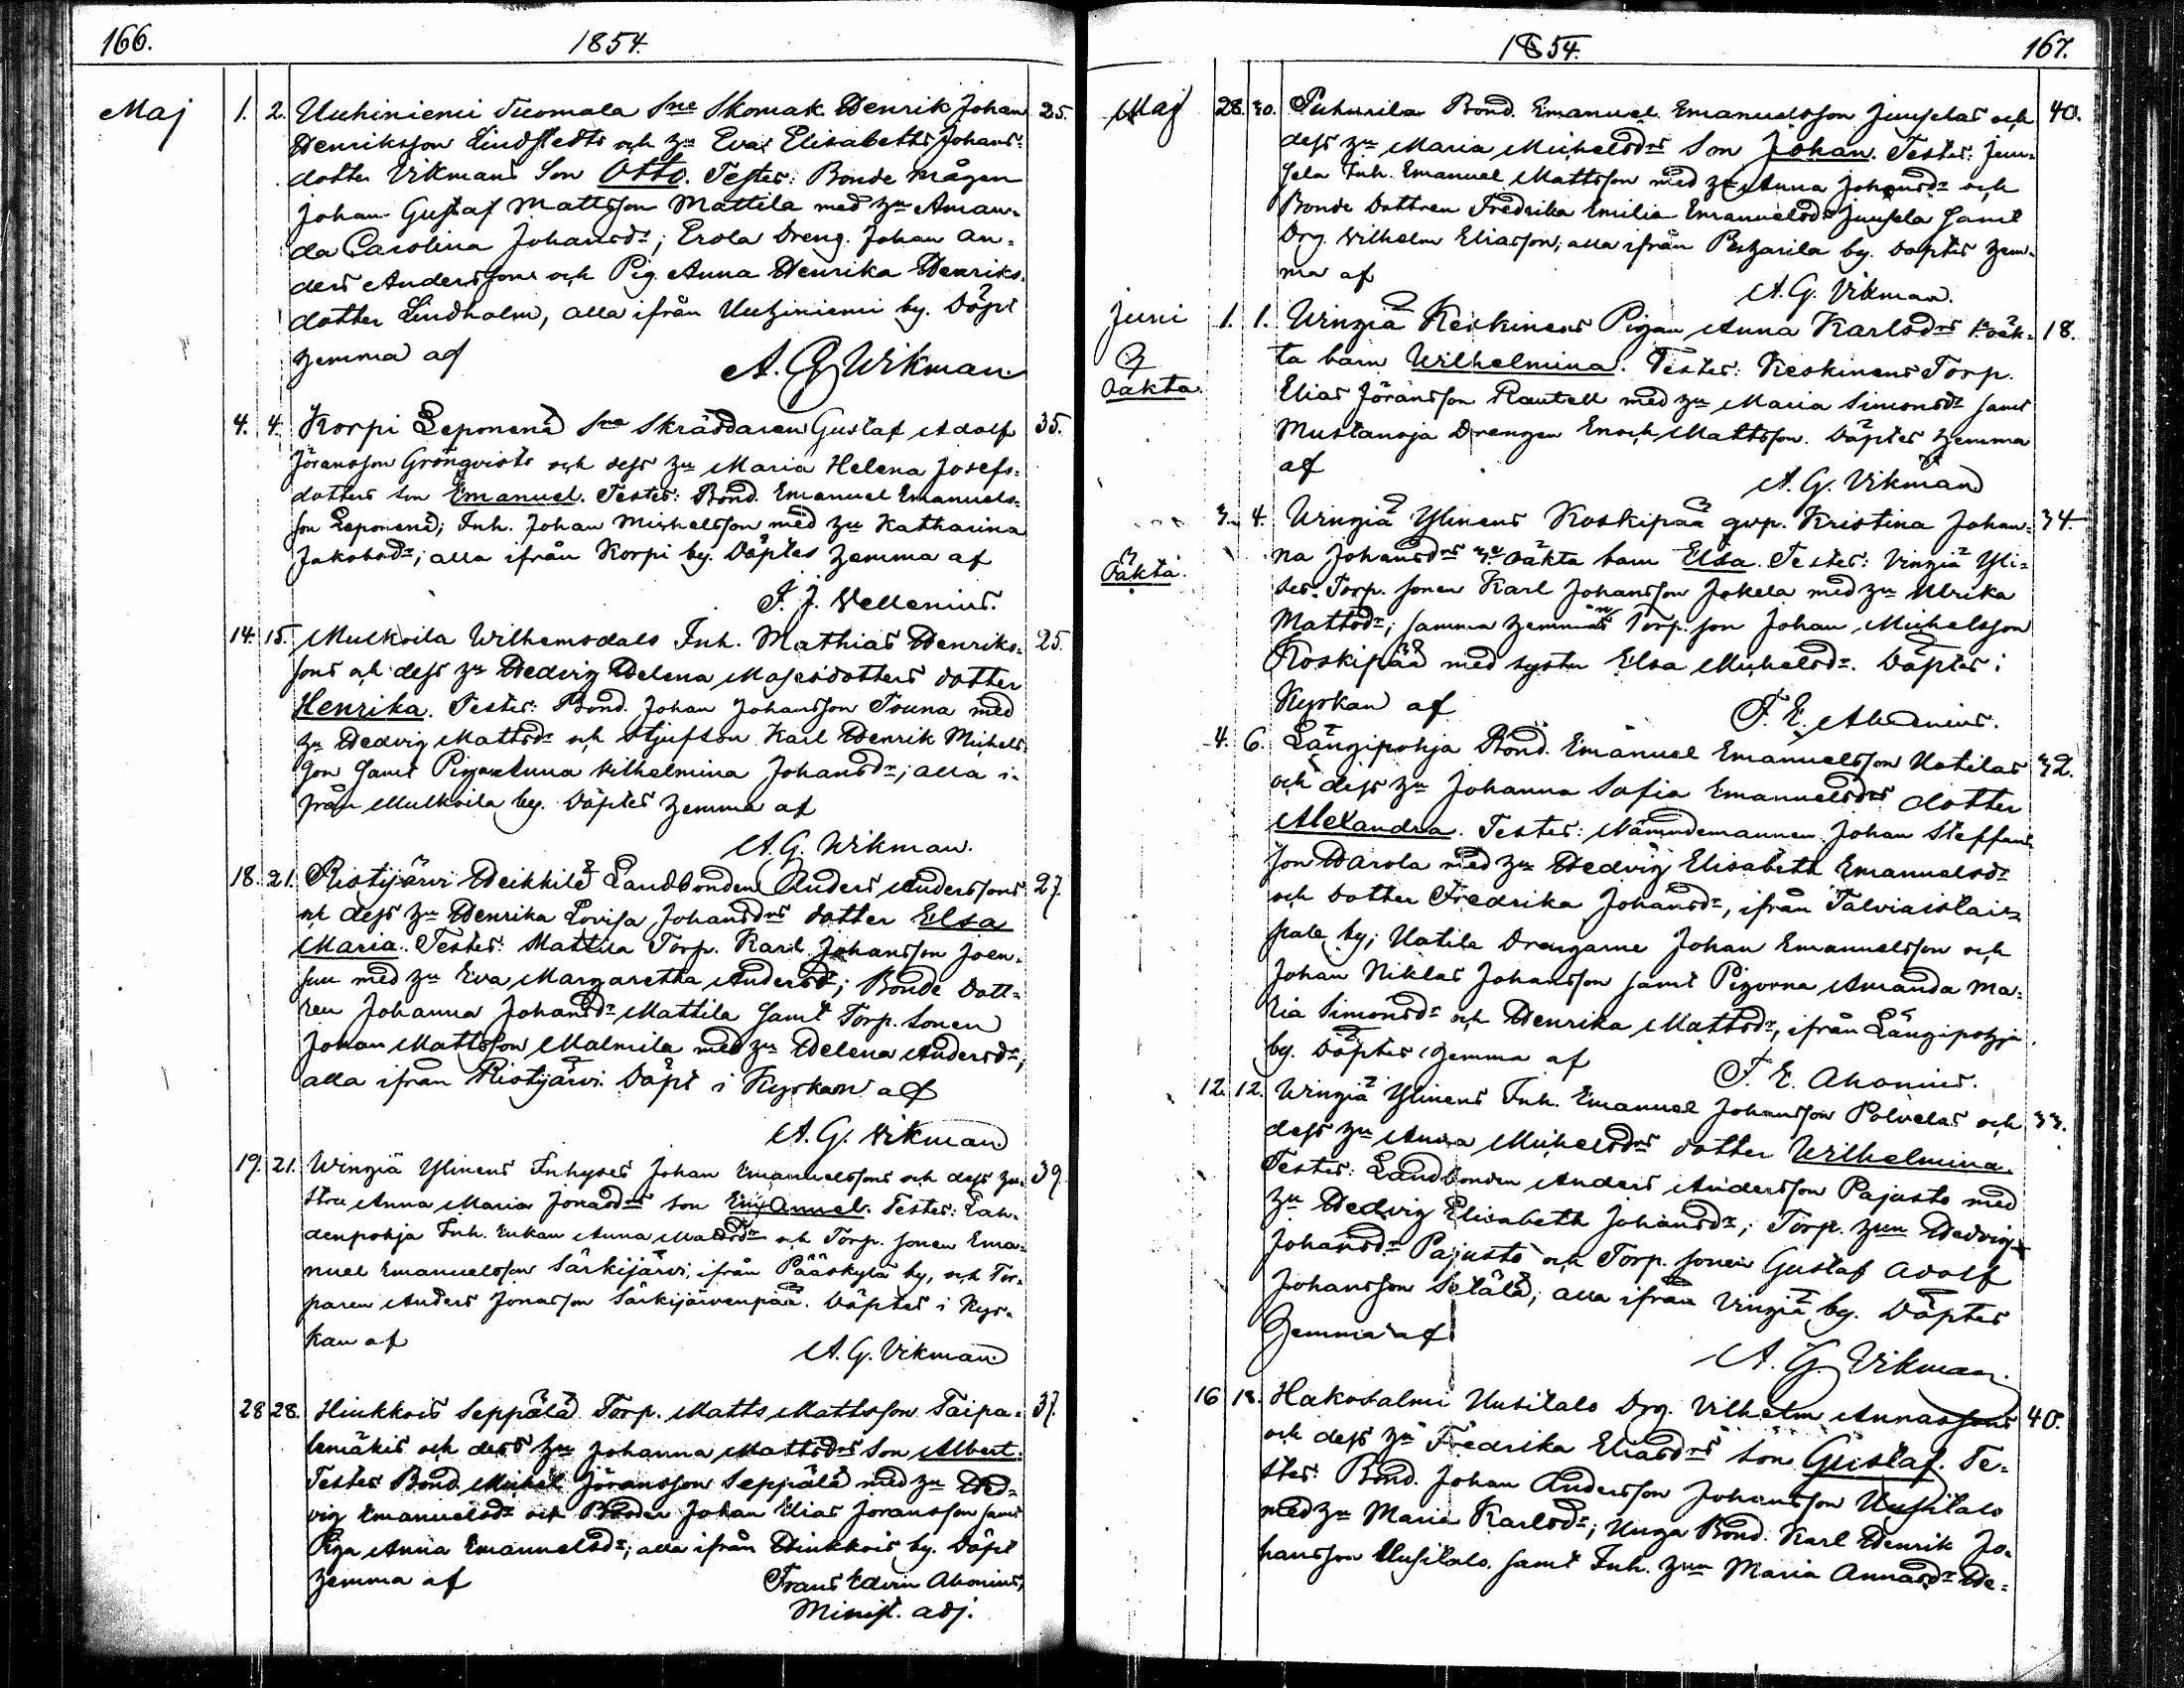 166. 1854.
Maj 1. 2. Uuhiniemi Tuomala Sne Skomak. Henrik Johan 25.
Henriksson Lindstedts och hu Eva Elisabeths Johans-
dotter Vikmans Son Otto. Testes: Bonde mågen
Johan Gustaf Mattsson Mattila med hu Aman-
da Carolina Johansdr; Erola Dreng. Johan An-
ders Andersson och Pig. Anna Henrika Henriks-
dotter Lindholm, alla ifrån Uuhiniemi by. Döpt
hemma af
A. G. Wikman.
4. 4. Korpi Leponens Sne Skräddaren Gustaf Adolf 35.
Jöransson Grönqvists och dess hu Maria Helena Josefs-
dotters son Emanuel. Testes: Bond. Emanuel Emanuels-
son Leponens; Inh. Johan Michelsson med hu Katharina
Jakobsdr; alla ifrån Korpi by. Döptes hemma af
F. J. Vellenius.
14. 15. Mulkoila Wilhemsdals Inh. Mathias Henriks- 25.
sons och dess hu Hedvig Helena Mosesdotters dotter
Henrika. Testes: Bond. Johan Johansson Touna med
hu Hedvig Mattsdr och Stjufson Karl Henrik Michels-
son samt Pigan Anna Vilhelmina Johansdr; alla i-
från Mulkoila by. Döptes hemma af
A. G. Wikman.
18. 21. Ristijärvi Heikkilä Landbonden Anders Anderssons 27.
och dess hu Henrika Lovisa Johansdrs dotter Elsa
Maria. Testes: Mattila Torp. Karl Johansson Joen-
suu med hu Eva Margaretha Andersdr; Bonde dott-
ren Johanna Johansdr Mattila samt Torp. Sonen
Johan Mattsson Malmila med hu Helena Andersdr;
alla ifrån Ristijärvi. Döpt i Kyrkan af
A. G. Vikman
19. 21. Winziä Ylinens Inhyses Johan Emanuelssons och dess hu- 39.
stru Anna Maria Jonasdrs son Emanuel. Testes: Lah-
denpohja Inh. Enkan Anna Mattsdr och Torp. sonen Ema-
nuel Emanuelsson Särkijärvi, ifrån Pääskylä by, och Tor-
paren Anders Jonasson Särkijärvenpää. Döptes i Kyr-
kan af
A. G. Vikman
28 28. Hinkkois Seppälä Torp. Matts Mattsson Taipa- 37.
lemäkis och dess hu Johanna Mattsdrs Son Albert.
Testes Bond. Michel Jöransson Seppälä med hu Hed-
vig Emanuelsdr och Broder Johan Elias Jöransson samt
Piga Anna Emanuelsdr; alla ifrån Hinkkois by. Döpt
hemma af Frans Edvin Ahonius,
Minist. adj.
1854. 167.
Maj 28. 30. Puhurila Bond. Emanuel Emanuelsson Junselas och 40.
dess hu Maria Michelsdrs Son Johan. Testes: Jun-
sela Inh. Emanuel Mattsson med hu Anna Johansdr och
Bonde Dottren Fredrika Emilia Emanuelsdr Junsela samt
Drg. Wilhelm Eliasson; alla ifrån by. Döptes hem-
ma af
A. G. Vikman.
Juni 1. 1. Winziä Keskinens Pigan Anna Karlsdrs oäk- 18.
Oäkta. ta barn Wilhelmina. Testes: Keskinens Torp.
Elias Jöransson Rautell med hu Maria Simonsdr samt
Mustanoja Drengen Enoch Mattsson. Döptes hemma
af
A. G. Vikman
3. 4. Winziä Ylinens Koskipää qvp. Kristina Johan- 34.
Oäkta. na Johansdrs 3e oäkta barn Elsa. Testes: Vinziä Yli-
Torp. sonen Karl Johansson Jokela med hu Ulrika
Mattsdr; samma Torp. son Johan Michelsson
Koskipää med syster Elsa Michelsdr. Döptes i
Kyrkan af
F. E. Ahonius.
4. 6. Längipohja Bond. Emanuel Emanuelsson Uotilas 32.
och dess hu Johanna Sofia Emanuelsdrs dotter
Alexandra. Testes: Nämndemannen Johan Steffans-
son Harola med hu Hedvig Elisabeth Emanuelsdr
och dotter Fredrika Johansdr, ifrån Talviaistai-
pale by; Uotila Drengarne Johan Emanuelsson och
Johan Niklas Johansson samt Pigorna Amanda Ma-
ria Simonsdr och Henrika Mattsdr, ifrån Längipohja
by. Döptes hemma af
F. E. Ahonius.
12. 12. Winziä Ylinens Inh. Emanuel Johansson Polvelas och 33.
dess hu Anna Michelsdrs dotter Wilhelmina.
Testes: Landbonden Anders Andersson Pajusto med
hu Hedvig Elisabeth Johansdr; Torp. hun Hedvig
Johansdr Pajusto och Torp. sonen Gustaf Adolf
Johansson Setälä, alla ifrån Vinziä by. Döptes
hemma af
A. G. Vikman.
16 18. Hakosalmi Uusitalo Drg. Vilhelm Annassons 40.
och dess hu Fredrika Eliasdrs Son Gustaf. Te-
stes: Bond. Johan Andersson Johansson Uusitalo
med hu Maria Karlsdr; Unga Bond. Karl Henrik Jo-
hansson Uusitalo samt Inh. hun Maria Annasdr He-